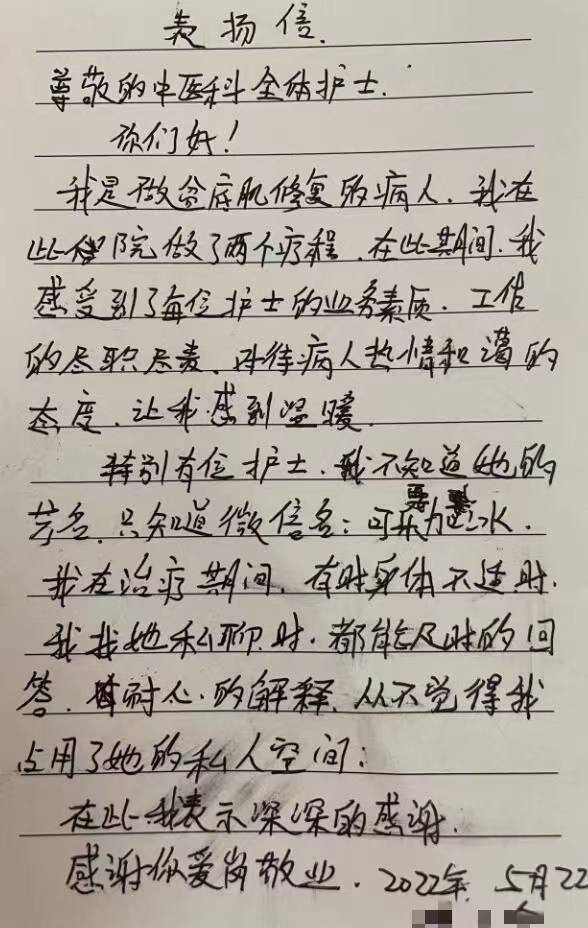 表扬信.
尊敬的中医科全体护士.
你们好！
我是做盆底肌修复的病人.我在
此医院做了两个疗程.在此期间.我
感受到了每位护士的业务素质.工作
的尽职尽责.对待病人热情和蔼的
态度.让我感到温暖.
特别有位护士.我不知道她的
芳名.只知道微信名：可乐要加冰.
我在治疗期间.有时身体不适时.
我找她私聊时.都能及时的回
答.耐心.的解释.从不觉得我
占用了她的私人空间；
在此我表示深深的感谢.
感谢你爱岗敬业.2022年5月22